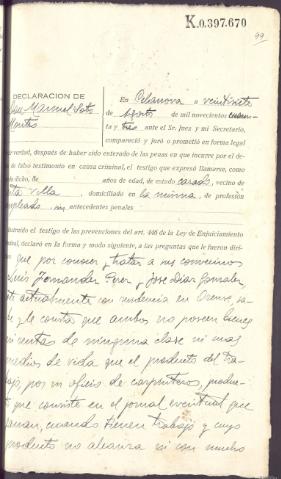 K.0.397.670
99
DECLARACION DE
Don Manuel Soto
Montes
En Celanova a veintisiete
de Agosto de mil novecientos cuaren-
ta y tres ante el Sr. Juez y mi Secretario,
compareció y juró o prometió en forma legal
verdad, después de haber sido enterado de las penas en que incurre por el de-
de falso testimonio en causa criminal, el testigo que expresó llamarse, como
dicho, de años de edad, de estado casado, vecino de
esta Villa, domiciliado en la misma, de profesión
empleado, sin antecedentes penales
Instruído el testigo de las prevenciones del art. 446 de la Ley de Enjuiciamiento
Criminal, declaró en la forma y modo siguiente, a las preguntas que le fueron diri-
que por conocer y tratar a sus convecinos
Luis Fernandez Perez y Jose Diaz Gonzalez
actualmente con residencia en Orense, sa-
be y le consta que ambos no poseen bienes
ni rentas de ninguna clase ni mas
medios de vida que el producto del tra-
bajo, por su oficio de carpinteros, produc-
to que consiste en el jornal eventual que
ganan, cuando tienen trabajo y cuyo
producto no alcanza ni con mucho